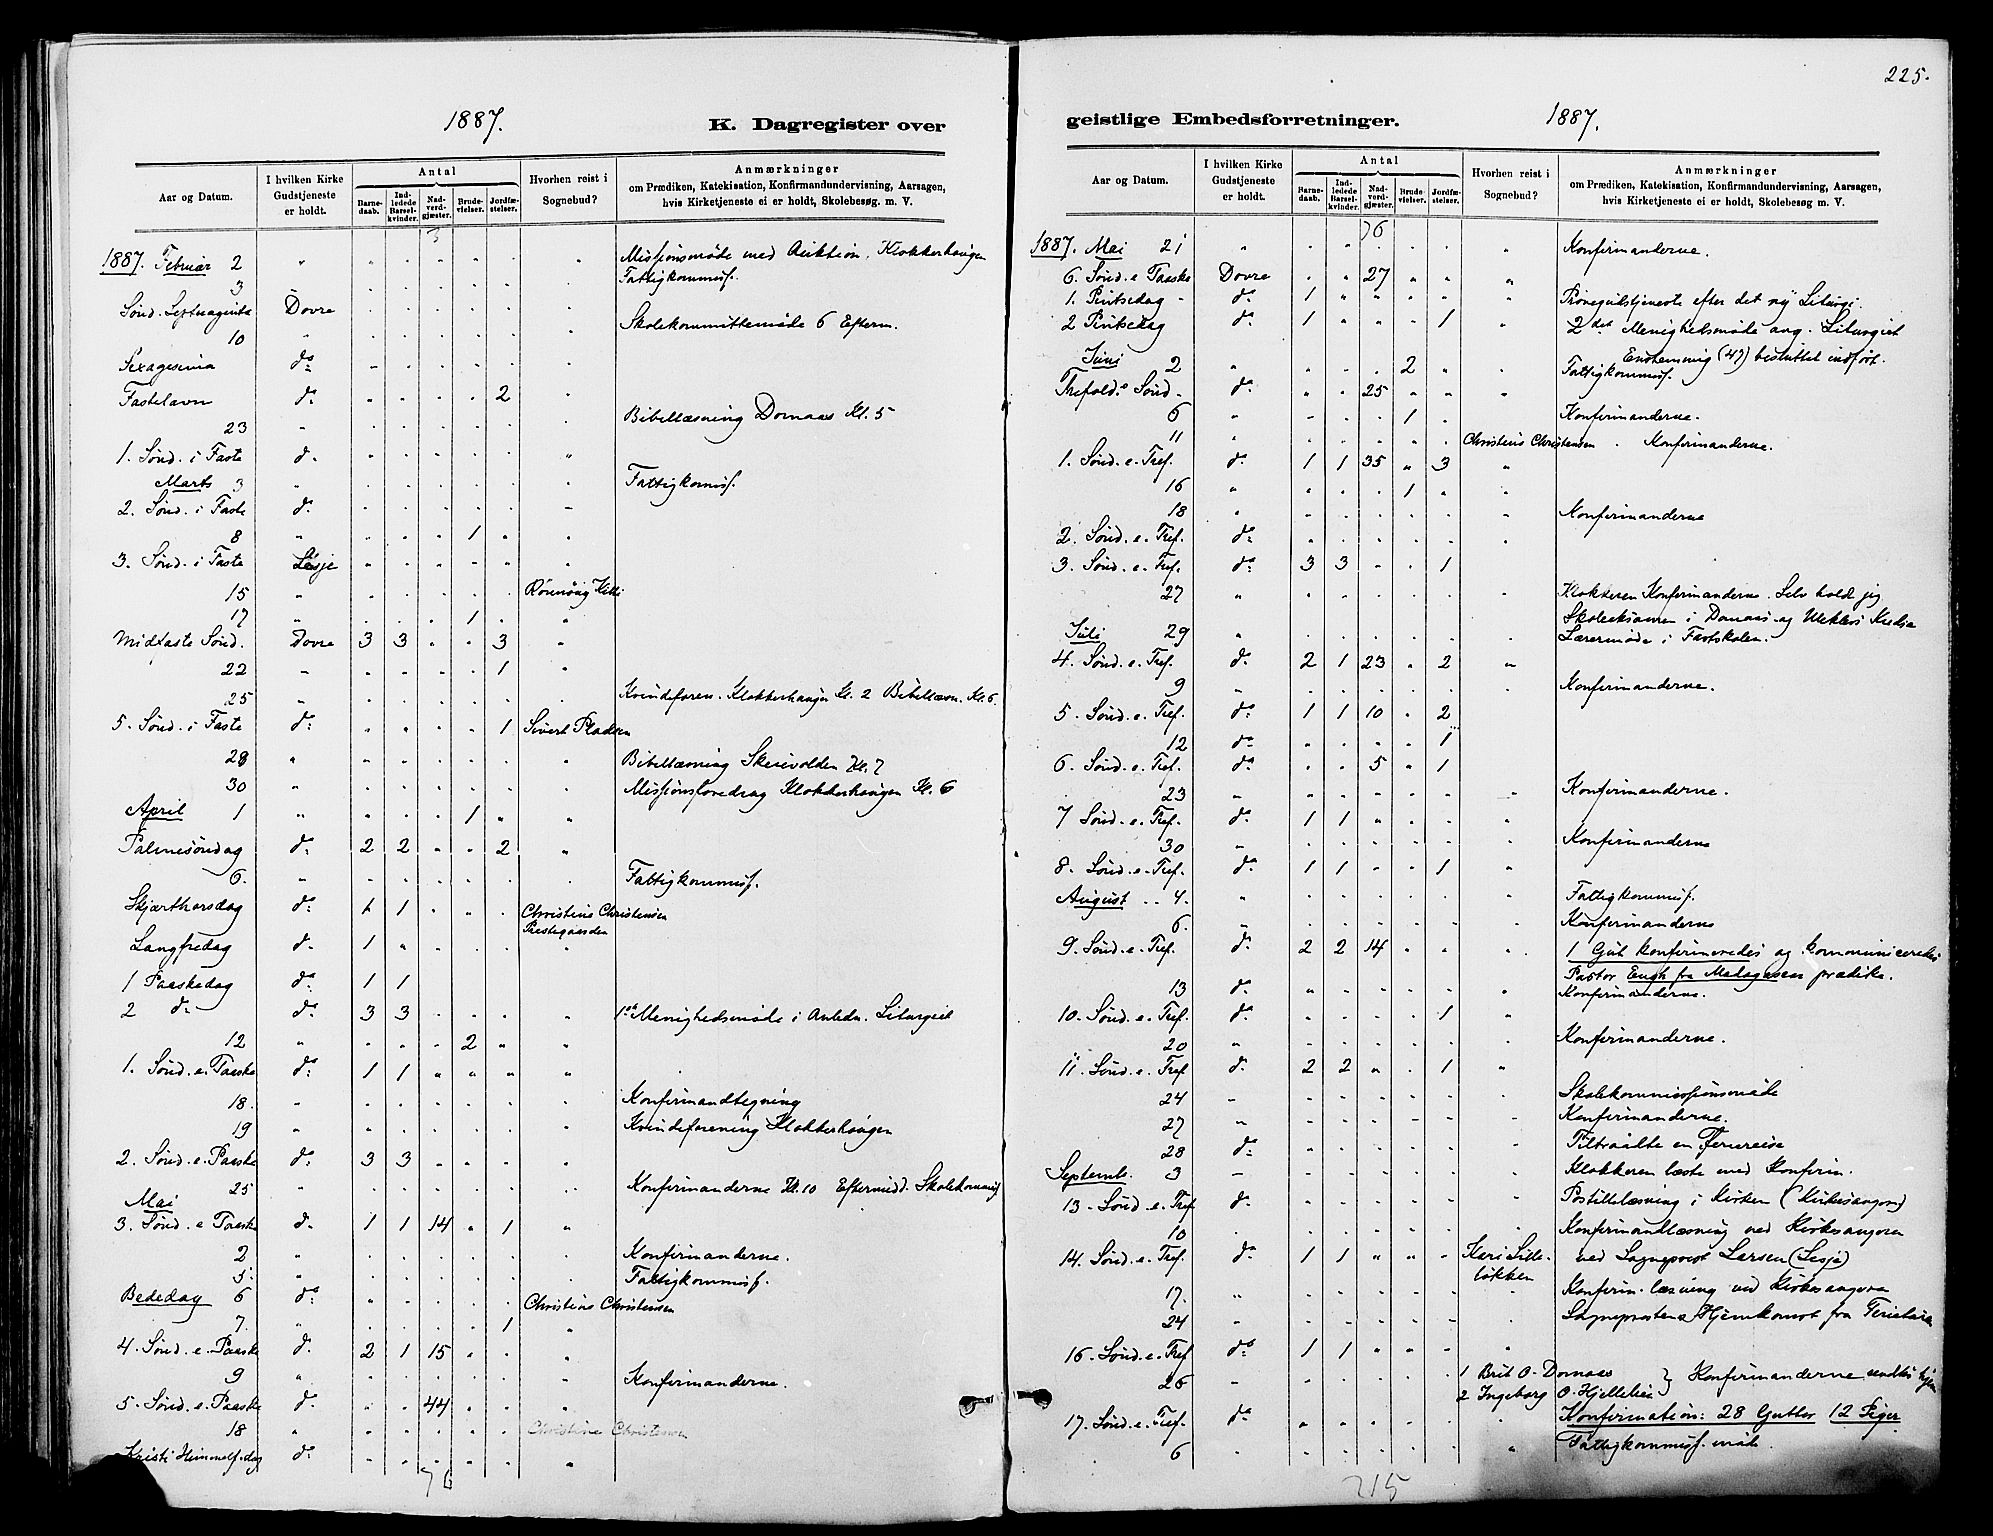 1887.
K. Dagregister over
Aar og Datum.
I hvilken Kirke Gudstjeneste er holdt.
Antal
Barne-daab.
Ind-ledede Barsel-kvinder.
Nad-verd-gjæster.
Brude-vielser.
Jordfæ-stelser.
Hvorhen reist i Sognebud?
Anmærkninger
om Prædiken, Katekisation, Konfirmandundervisning, Aarsagen,
hvis Kirketjeneste ei er holdt, Skolebesøg. m. V.
3
1887. Februar 2 " Missionsmøde med Auktion. Klokkerhaugen
3 Fattigkommis.
Sønd. Septuagesita Dovre
10 Skolekommittemøde 6 Efterm.
Sexagesima do
Fastelavn do 2
23 Bibellæsning Dornaas Kl. 5
1. Sønd. i Faste do
Marts 3 Fattigkomis.
2. Sønd. i Faste do
8 1
3. Sønd. i Faste Lesje
15
17 1
Midfaste Sønd. Dovre 3 3 3
22 1
25 Kvindeforen. Klokkerhaugen Kl. 2 Bibellæsn. Kl. 6.
5. Sønd. i Faste do 1 Sivert Pladsen
28 Bibellæsning Skrivolden Kl. 7
30 Missionsforedrag Klokkerhaugen Kl. 6
April 1 1
Palmesøndag do 2 2 2
6. Fattigkommis.
Skjærthorsdag do 1 1 Christine Christensen
Præstegaarden
Langfredag do 1
1 Paaskedag do 1 1
2 do do 3 3 1ste Menighedsmøde i Anledn. Liturgiet
12 2
1. Sønd. e. Paaske do 1 1
18. Konfirmandtegning
19 Kvindeforening Klokkerhaugen
2. Sønd. e. Paaske do 3 3
25 Konfirmanderne Kl. 10 Eftermidd. Skolekommis
Mai
3. Sønd. e Paaske do 1 1 14 1
2 Konfirmanderne.
5. Fattigkommis.
Bededag 6 do Christine Christensen
7. 1
4. Sønd. e. Paaske do 2 1 15
9 Konfirmanderne.
5. Sønd. e. Paaske do 44
18 Christine Christensen
Kristi Himmelf.dag do
76
225.
geistlige Embedsforretninger.
1887.
Aar og Datum.
I hvilken Kirke Gudstjeneste er holdt.
Antal
Barne-daab.
Ind-ledede Barsel-kvinder.
Nad-verd-gjæster.
Brude-vielser.
Jordfæ-stelser.
Hvorhen reist i Sognebud?
Anmærkninger
om Prædiken, Katekisation, Konfirmandundervisning, Aarsagen,
hvis Kirketjeneste ei er holdt, Skolebesøg m. V.
76
1887. Mai 21 Konfirmanderne.
6. Sønd. e Paaske Dovre 27
1. Pintsedag do 1 Prøvegudstjeneste efter det ny Liturgi.
2 Pintsedag do 1 1 2det Menighedsmøde ang. Liturgiet
Enstemmig (49) besluttet indført.
Juni 2 2 Fattigkommis.
Trefold.s Sønd. do 25
6 1 Konfirmanderne.
11 Christine Christensen. Konfirmanderne.
1. Sønd. e. Tref. do 1 1 35 3
16 1
18 Konfirmanderne
2. Sønd. e. Tref. do
3. Sønd. e. Tref. do 3 3 1
27 Klokkeren Konfirmanderne. Selv holdt jeg
Skoleeksamen i Dornaas og
Juli 29 Lærermøde i Fastskolen.
4. Sønd. e. Tref. do 2 1 23 2
9 Konfirmanderne.
5. Sønd. e. Tref. do 1 1 10 2
12 do 1
6. Sønd. e. Tref. do 5 1
23 Konfirmanderne.
7 Sønd. e. Tref. do 1 1
30 Konfirmanderne
8. Sønd. e. Tref. do 1 1 1
August 4. Fattigkommis.
6. Konfirmanderne
9. Sønd. e. Tref. do 2 2 14 1 Gut konfirmeredes og kommuniceredes
Pastor Engh fra Madagascar prædike.
13 do Konfirmanderne.
10. Sønd. e. Tref. do 1
20 Konfirmanderne.
11. Sønd. e. Tref. do 2 2 1
24 Skolekommissionsmøde
27 Konfirmanderne.
28 do Tiltraadte en Feriereise
Septemb. 3 Klokkeren læste med Konfirm.
13. Sønd. e. Tref do Postillelæsning i Kirken (Kirkesangeren)
10 Konfirmandlæsning ved Kirkesangeren
14. Sønd. e. Tref. do 1 1 Kari Lille- ved Sognepræst Larsen (Lesje)
løkken
17. Konfirm. læsning ved Kirkesangeren
24 Sognepræstens Hjemkomst fra
16. Sønd. e. Tref do 1 1
26 1 Brit O. Dornaas } Konfirmanderne
2 Ingeborg O. Hjellelien
17. Sønd. e. Tref. do Konfirmation: 28 Gutter 12 Piger
6 Fattigkommis. møde.
215